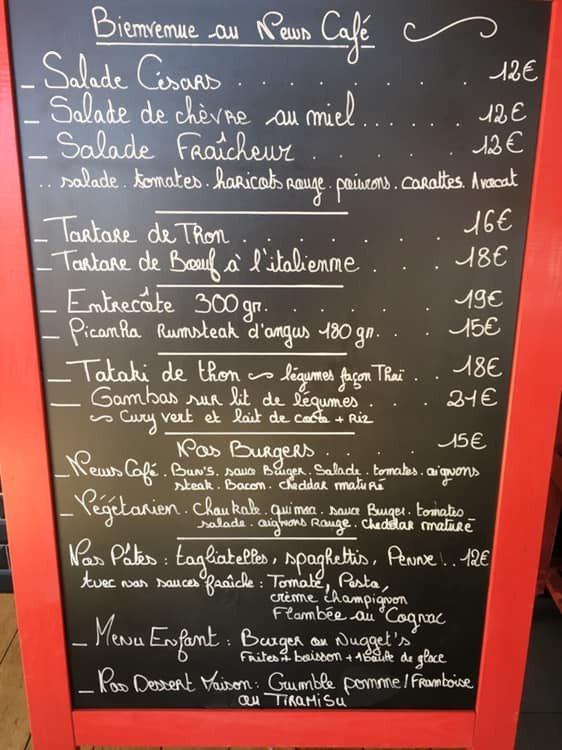 Bienvenue au News Café
_ Salade Césars . . . . . . . . 12€
_ Salade de chèvre au miel . . . . . 12€
_ Salade Fraîcheur . . . . . . 12€
.. salade . tomates . haricots rouge . poivrons . carottes . Avocat
_ Tartare de Thon . . . . . . 16€
_ Tartare de Bœuf à l'italienne . . . 18€
_ Entrecôte 300gr. . . . . . . 19€
_ Picanha Rumsteak d'angus 180 gr. . . 15€
_ Tataki de thon ~ légumes façon Thaï . . 18€
_ Gambas sur lit de légumes . . . . 21€
~ Cury vert et lait de coco + Riz
Nos Burgers . . . . . 15€
_ News Café . Bun's . sauce Burger . Salade . tomates . oignons
steak . Bacon . cheddar maturé
_ Végétarien . Chou kale . quinoa . sauce Burger . tomates
salade . oignons Rouge . cheddar maturé
Nos Pâtes : tagliatelles, spaghettis, Penne . . 12€
Avec nos sauces fraîche : Tomate, Pesto,
crème champignon
Flambée au Cognac
_ Menu Enfant : Burger ou Nugget's
Frites + boisson + 1 boule de glace
_ Nos Dessert Maison : Crumble pomme / Framboise
ou TIRAMISU